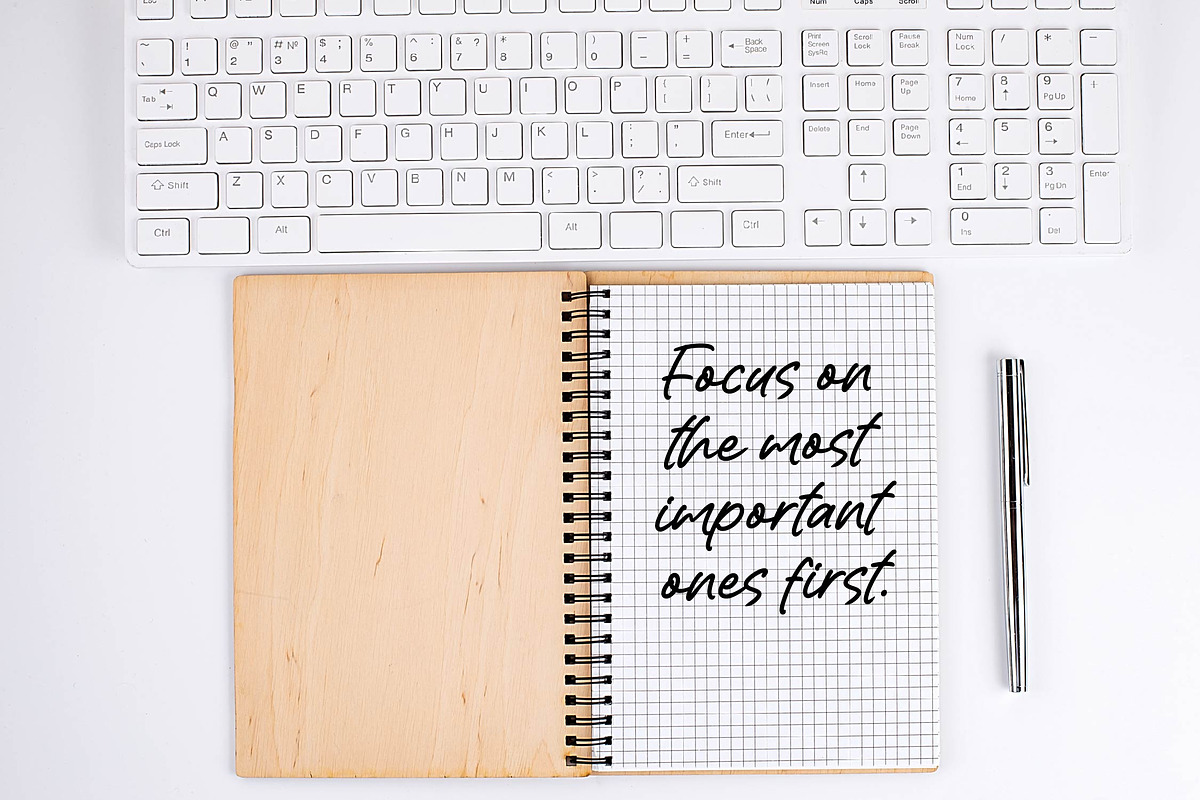 Esc
Num Caps Scroll
~ ` ! 1 @ " 2 # № 3 $ ; 4 % 5 ^ : 6 & ? 7 * 8 ( 9 ) 0 _ - + = Back Space Print Screen SysRq Scroll Lock Pause Break Num Lock / * -
Tab Q W E R T Y U I O P { [ } ] | / \ \ Insert Home Page Up 7 Home 8 ↑ 9 PgUp +
Caps Lock A S D F G H J K L : ; " ' Enter Delete End Page Down 4 ← 5 6 →
Shift Z X C V B N M < , > . ? / : . Shift ↑ 1 End 2 ↓ 3 PgDn Enter
Ctrl Alt Alt Ctrl ← ↓ → 0 Ins . Del
Focus on
the most
important
ones first.